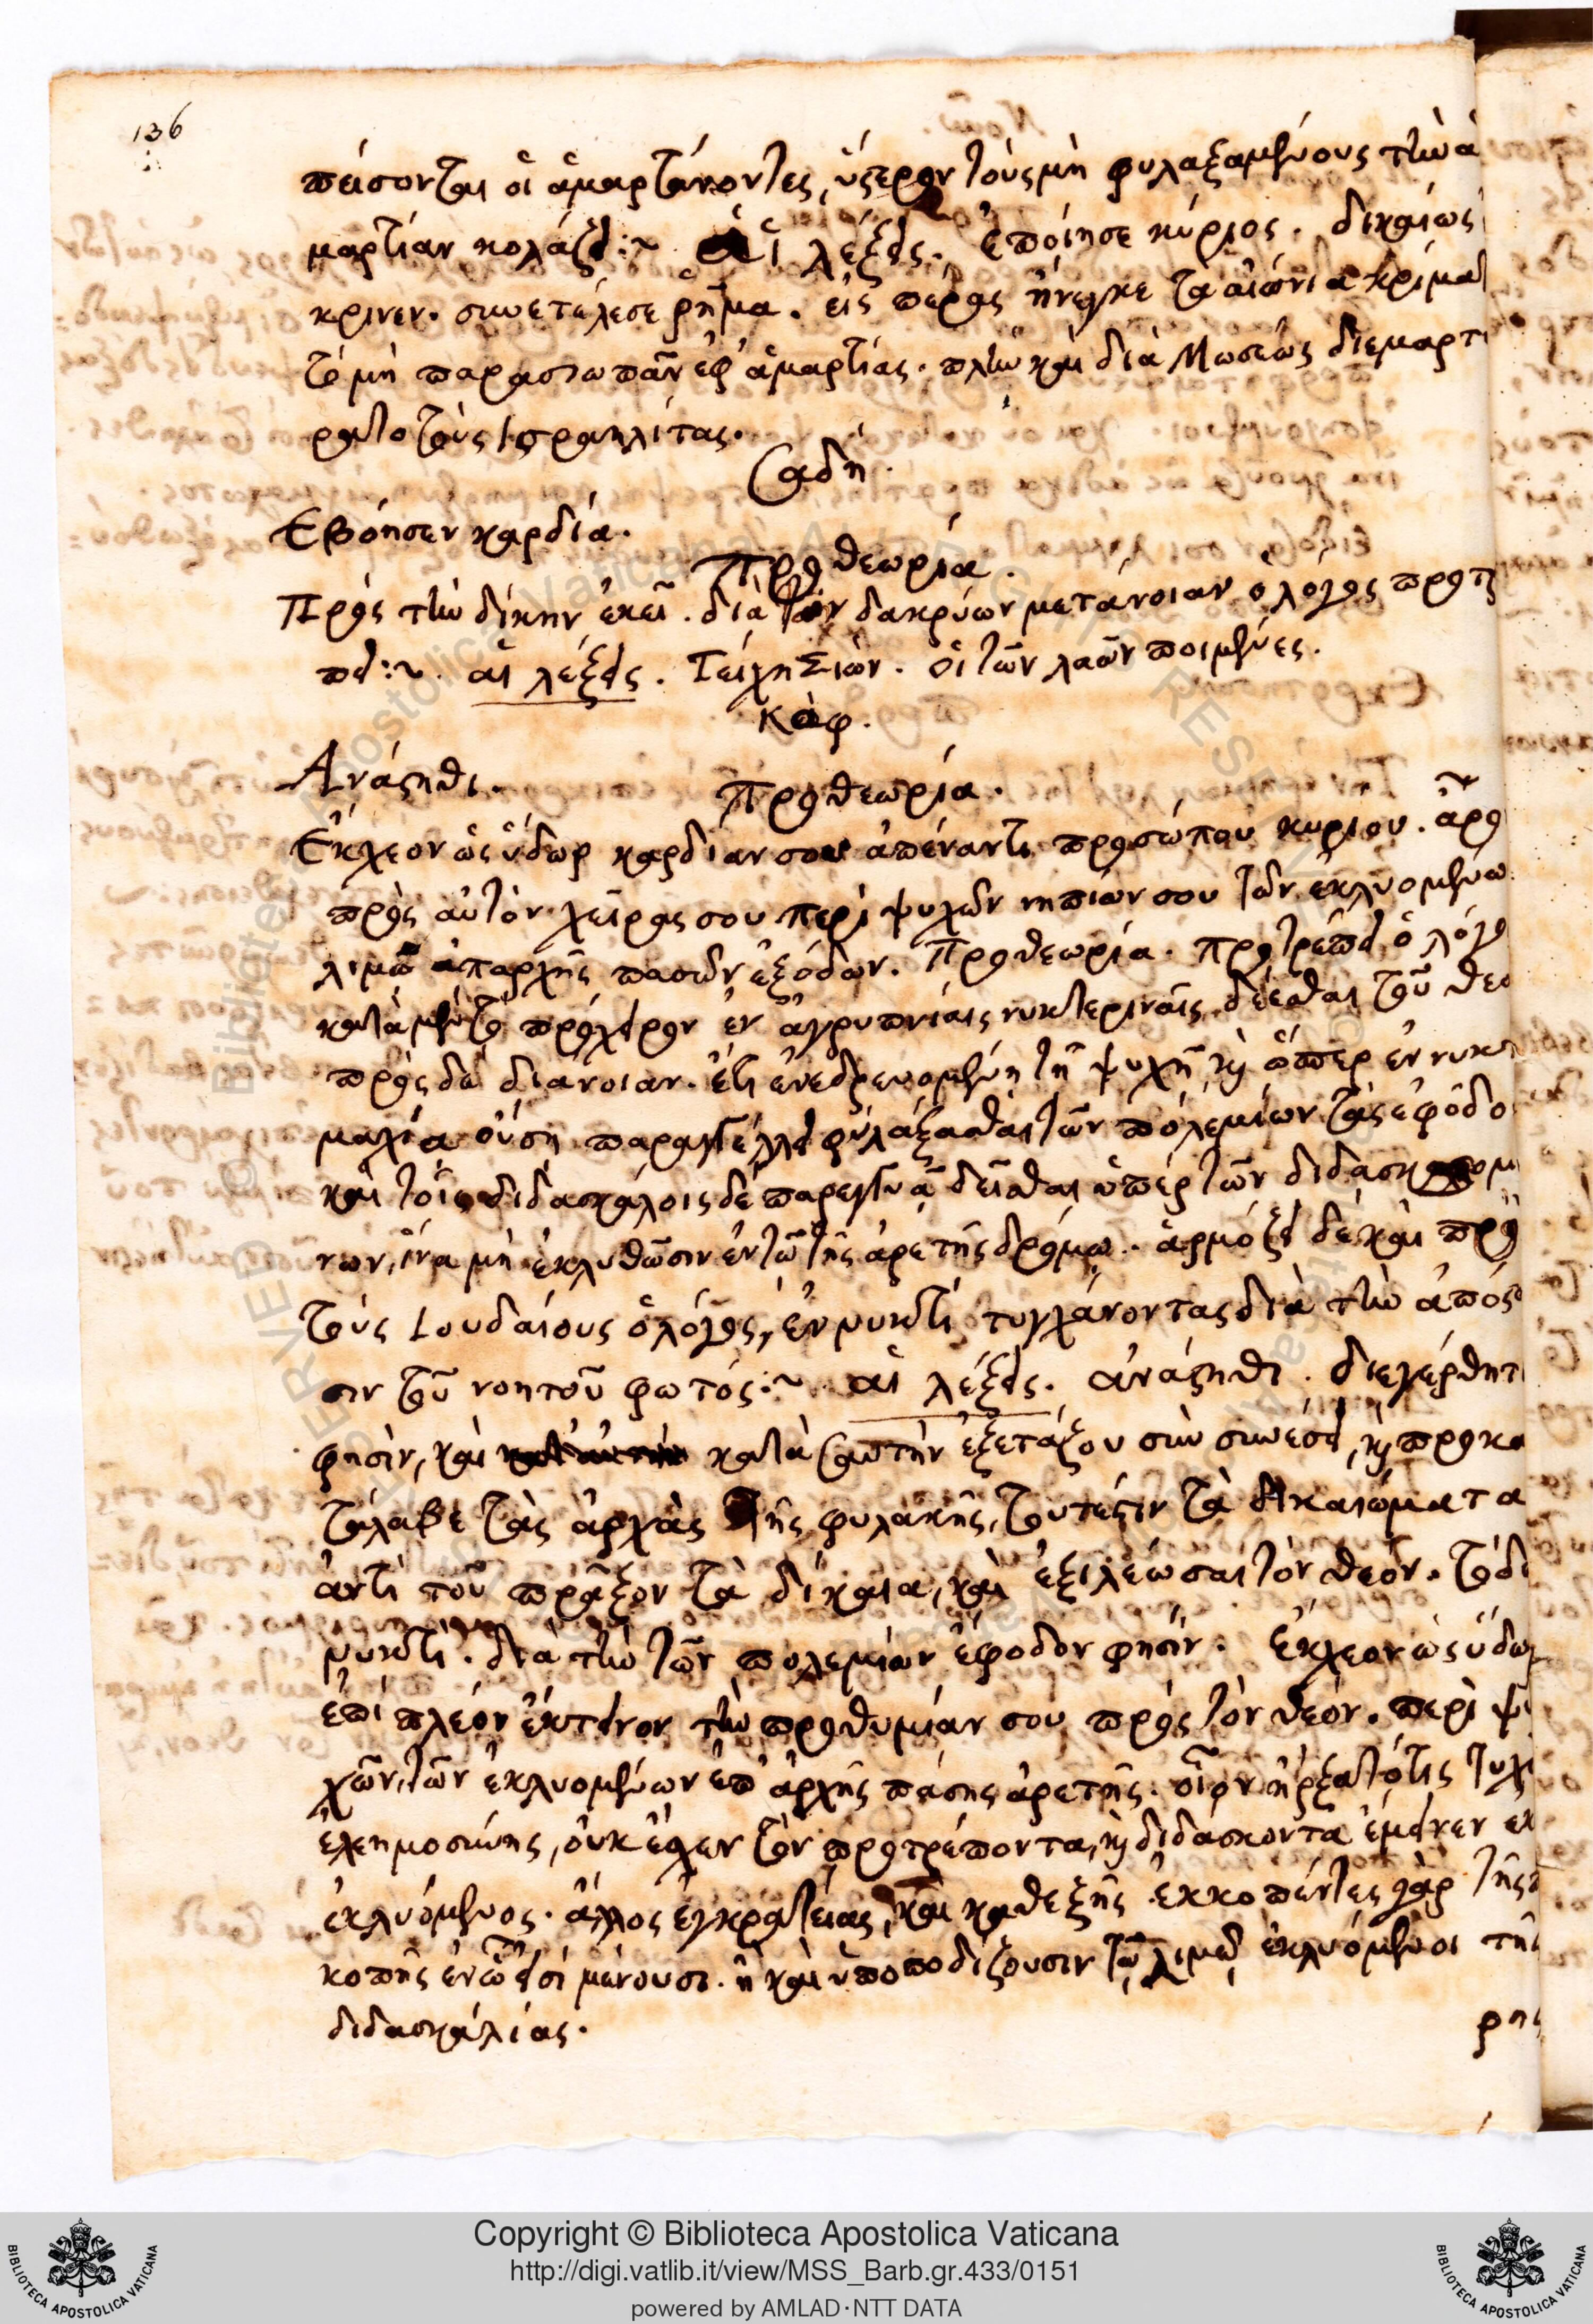 136
πείσονται οἱ ἁμαρτάνοντες, ὕστερον τοὺς μὴ φυλαξαμένους τὴν ἁ
μαρτίαν κολάζει :~ Αἱ λέξεις. ἐποίησε κύριος. δικαίως
κρινεν. συνετέλεσε ῥῆμα. εἰς πέρας ἤνεγκε τὰ αἰώνια κρίματ
τὸ μὴ παρασιωπᾶν ἐφ' ἁμαρτίας. πλὴν καὶ διὰ Μωσέως διεμαρτ
ρατο τοὺς Ισραηλίτας.
Σαδή.
Εβόησεν καρδία.
Προθεωρία.
Πρὸς τὴν δίκην ἐκεῖ. διὰ τῶν δακρύων μετάνοιαν ὁ λόγος προτρ
πει :~ αἱ λέξεις. Τείχη Σιών. οἱ τῶν λαῶν ποιμένες.
Κάφ.
Ανάστηθι.
Προθεωρία.
Εκχεον ὡς ὕδωρ καρδίαν σου ἀπέναντι προσώπου κυρίου. ἆρο
πρὸς αὐτὸν χεῖρας σου περὶ ψυχῶν νηπίων σου τῶν ἐκλυομένω
λιμῷ ἀπαρχῆς πασῶν ἐξόδων. Προθεωρία. προτρέπει ὁ λόγο
κατὰ μὲν τὸ πρόχειρον ἐν ἀγρυπνίαις νυκτεριναῖς δέεσθαι τοῦ θεο
πρὸς δὲ διάνοιαν. ἔτι ἐνεδρευομένη τῇ ψυχῇ, καὶ ὥσπερ ἐν νυκτ
μαχία οὔσῃ παραγγέλλει φυλάξασθαι τῶν πολεμίων τὰς ἐφόδο
καὶ τοῖς διδασκάλοις δὲ παρεγγυᾷ δεῖσθαι ὑπὲρ τῶν διδασκομ
νων, ἵνα μὴ ἐκλυθῶσιν ἐν τῷ τῆς ἀρετῆς δρόμῳ. ἁρμόζει δὲ καὶ πρὸ
τοὺς Ιουδαίους ὁ λόγος, ἐν νυκτὶ τυγχάνοντας διὰ τὴν ἀπόσ
σιν τοῦ νοητοῦ φωτός :~ αἱ λέξεις. ἀνάστηθι. διεγέρθητι
φησὶν, καὶ κατὰ σαυτὴν ἐξετάζου σὺν συνέσει, καὶ προκα
τάλαβε τὰς ἀρχὰς τῆς φυλακῆς, τουτέστιν τὰ δικαιώματα
ἀντὶ τοῦ πρᾶξον τὰ δίκαια, καὶ ἐξιλέωσαι τὸν θεόν. τὸ δὲ
νυκτὶ. διὰ τὴν τῶν πολεμίων ἔφοδον φησίν. Εκχεον ὡς ὕδωρ
ἐπὶ πλέον ἔκτεινον τὴν προθυμίαν σου πρὸς τὸν θεόν. περὶ ψυ
χῶν, τῶν ἐκλυομένων ἐπ' ἀρχῆς πάσης ἀρετῆς. οἷον ἤρξατό τις τυχ
ἐλεημοσύνης, οὐκ ἔχεν τὸν προτρέποντα, καὶ διδάσκοντα ἐμεινεν ἐκ
ἐκλυόμενος. ἄλλος ἐγκρατείας, καὶ καθεξῆς ἐκκοπέντες γὰρ τῆς
κοπῆς ἐν ᾧ εἰσὶ μένουσι. ἢ καὶ ὑποποδίζουσιν τῷ λιμῷ ἐκλυόμενοι τῆς
διδασκαλίας.
ρης